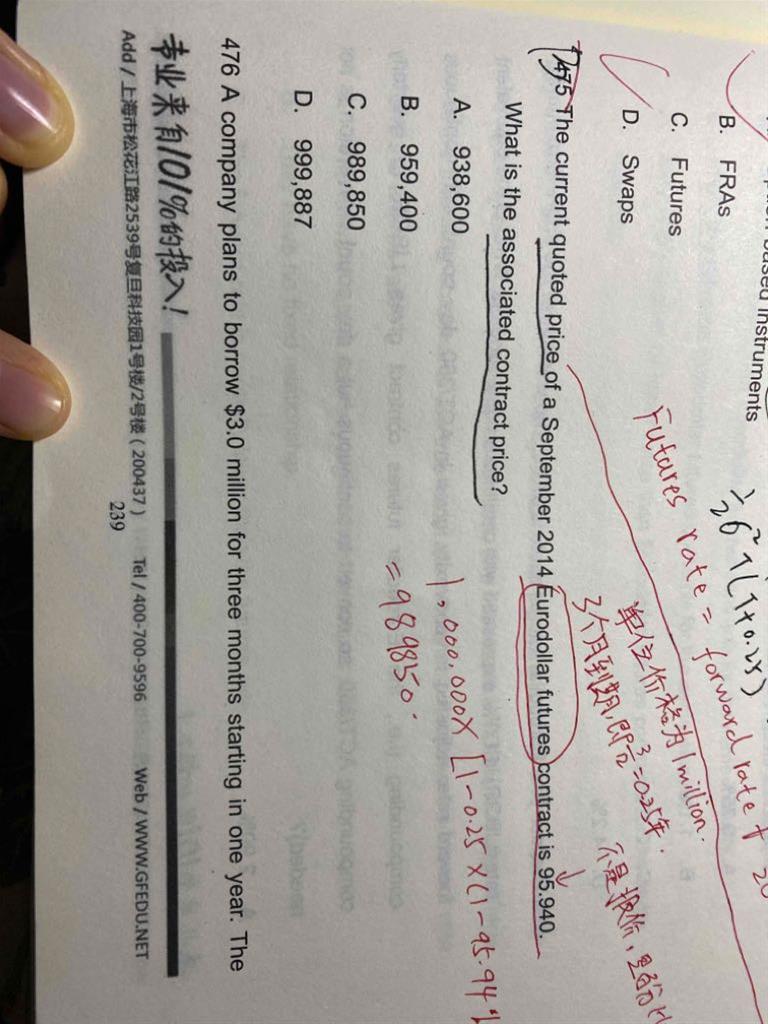 B. FRAs
C. Futures
D. Swaps
½σ²T(T+0.25)
Futures rate = forward rate +
单位价格为1million.
3个月到期,即3/12=0.25年.
475 The current quoted price of a September 2014 Eurodollar futures contract is 95.940.
What is the associated contract price?
A. 938,600
B. 959,400
C. 989,850
D. 999,887
1,000.000×[1-0.25×(1-95.94%
=989850.
476 A company plans to borrow $3.0 million for three months starting in one year. The
专业来自101%的投入!
Add / 上海市松花江路2539号复旦科技园1号楼/2号楼(200437) Tel / 400-700-9596 Web / WWW.GFEDU.NET
239